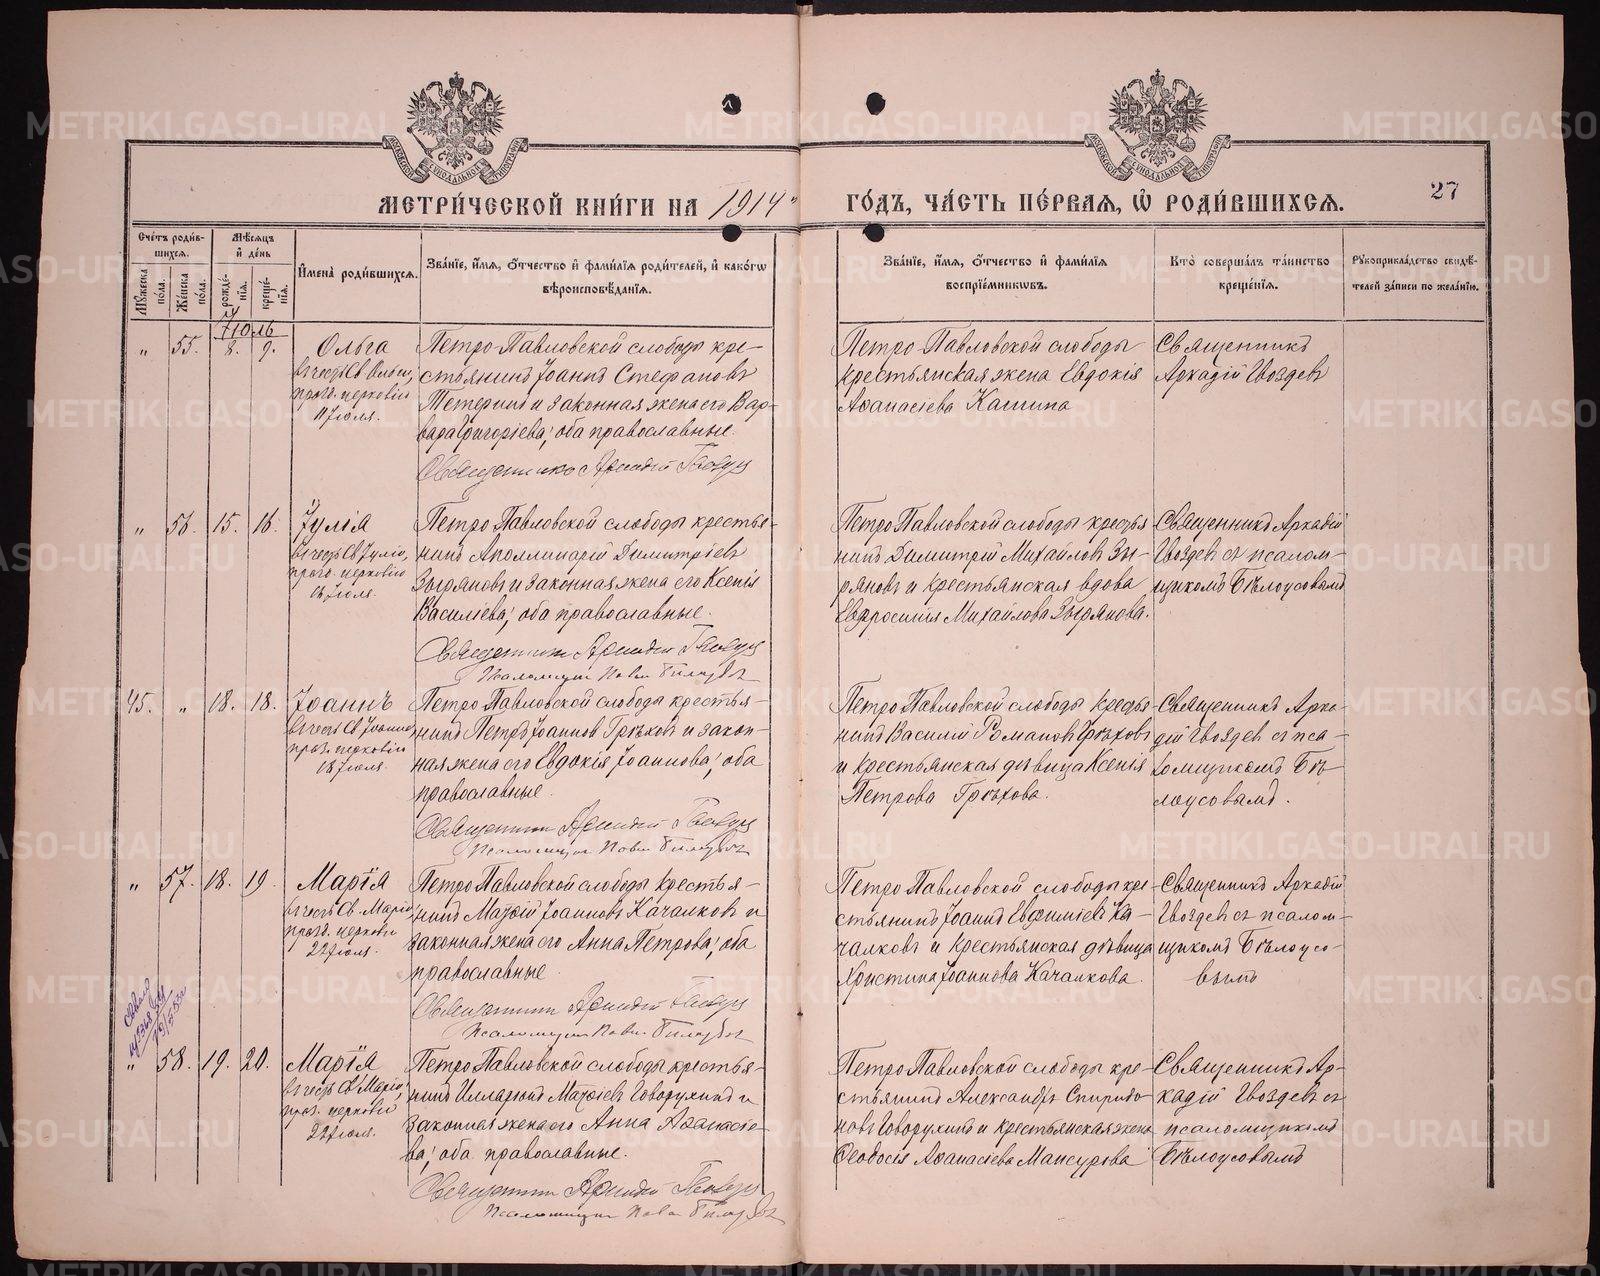 МЕТРИ́ЧЕСКОЙ КНИ́ГИ НА 1914 ГО́ДЪ, ЧА́СТЬ ПЕ́РВАЯ, Ѡ РОДИ́ВШИХСЯ.
27
Сче́тъ роди́в-
шихся.
Мѣ́сяцъ
и҆ де́нь
Мꙋ́жеска по́ла.
Же́нска по́ла.
рожде́-
нїѧ.
креще́-
нїѧ.
И҆мена̀ роди́вшихся.
Зва́нїе, и҆́мѧ, ѻ҆́тчество и҆ фами́лїѧ роди́телей, и҆ како́гѡ
вѣроисповѣ́данїѧ.
Зва́нїе, и҆́мѧ, ѻ҆́тчество и҆ фами́лїѧ
воспрїе́мникѡвъ.
Кто̀ соверша́лъ та́инство
креще́нїѧ.
Рꙋкоприкла́дство свидѣ́-
телей за́писи по жела́нїю.
Іюль
" 55. 8. 9.
Ольга
въ честь Св Ольги,
празд. церковію
11 Іюля.
Петро-Павловской слободы кре-
стьянинъ Іоаннъ Стефановъ
Тетеринъ и законная жена его Вар-
вара Григоріева; оба православные.
Священникъ Аркадій Гвоздевъ
Петро-Павловской слободы
крестьянская жена Евдокія
Аѳанасіева Кашина
Священникъ
Аркадій Гвоздевъ
" 56. 15. 16.
Іулія
въ честь Св Іуліи,
празд. церковію
16 Іюля.
Петро Павловской слободы крестья-
нинъ Аполлинарій Димитріевъ
Зыряновъ и законная жена его Ксенія
Васильева; оба православные.
Священникъ Аркадій Гвоздевъ
Псаломщикъ Бѣлоусовъ
Петро Павловской слободы крестья
нинъ Димитрій Михайловъ Зы-
ряновъ и крестьянская вдова
Евфросинія Михайлова Зырянова.
Священникъ Аркадій
Гвоздевъ съ псалом-
щикомъ Бѣлоусовымъ
45. " 18. 18.
Іоаннъ
въ честь Св Іоанна,
праз. церковію
18 Іюля.
Петро Павловской слободы крестья-
нинъ Петръ Іоанновъ Грѣховъ и закон-
ная жена его Евдокія Іоаннова; оба
православные.
Священникъ Аркадій Гвоздевъ
Псаломщикъ Бѣлоусовъ
Петро Павловской слободы крестья
нинъ Василій Романовъ Грѣховъ
и крестьянская дѣвица Ксенія
Петрова Грѣхова.
Священникъ Арка-
дій Гвоздевъ съ пса-
ломщикомъ Бѣ-
лоусовымъ.
" 57. 18. 19.
Марія
въ честь Св. Маріи,
празд. церковію
22 Іюля.
Петро Павловской слободы крестья-
нинъ Матѳій Іоанновъ Качалковъ и
законная жена его Анна Петрова; оба
православные.
Священникъ Аркадій Гвоздевъ
Псаломщикъ Бѣлоусовъ
Петро Павловской слободы кре-
стьянинъ Іоаннъ Евфиміевъ Ка-
чалковъ и крестьянская дѣвица
Христина Іоаннова Качалкова.
Священникъ Аркадій
Гвоздевъ съ псалом-
щикомъ Бѣлоусо-
вымъ
" 58. 19. 20.
Марія
въ честь Св Маріи,
праз. церковію
22 Іюля.
Петро Павловской слободы крестья-
нинъ Илларіонъ Матѳіевъ Говорухинъ и
законная жена его Анна Аѳанасіе-
ва; оба православные.
Священникъ Аркадій Гвоздевъ
Псаломщикъ Бѣлоусовъ
Петро Павловской слободы кре-
стьянинъ Александръ Спиридо-
новъ Говорухинъ и крестьянская жена
Ѳеодосія Аѳанасіева Мансурова
Священникъ Ар-
кадій Гвоздевъ съ
псаломщикомъ
Бѣлоусовымъ
METRIKI.GASO-URAL.RU